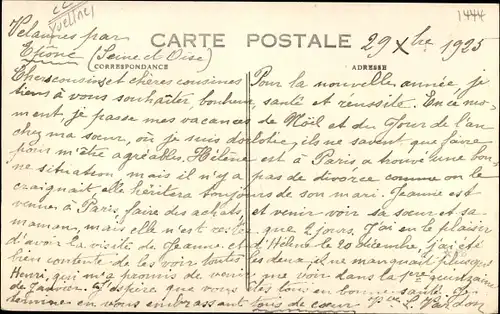 Yvelines
1444
Velannes par
Epône (Seine et Oise)
CARTE POSTALE
29 Xbre 1925
CORRESPONDANCE
ADRESSE
Chers cousins et chères cousines Pour la nouvelle année, je
tiens à vous souhaiter, bonheur, santé et réussite. En ce mo-
ment, je passe mes vacances de Noël et du Jour de l'an
chez ma sœur, où je suis dorlotée, ils ne savent que faire
pour m'être agréables. Hélène est à Paris a trouvé une bon-
ne situation mais il n'y a pas de divorce comme on le
craignait elle héritera toujours de son mari. Jeanne est
venue à Paris, faire des achats, et venir voir sa sœur et sa
maman, mais elle n'est restée que 2 jours. J'ai eu le plaisir
d'avoir la visite de Jeanne et d'Hélène le 20 décembre, j'ai été
bien contente de les voir toutes les deux, il ne manquait plus que
Henri, qui m'a promis de venir me voir dans la 1ère quinzaine
de Janvier. J'espère que vous êtes tous en bonne santé. Je
termine en vous embrassant tous de cœur